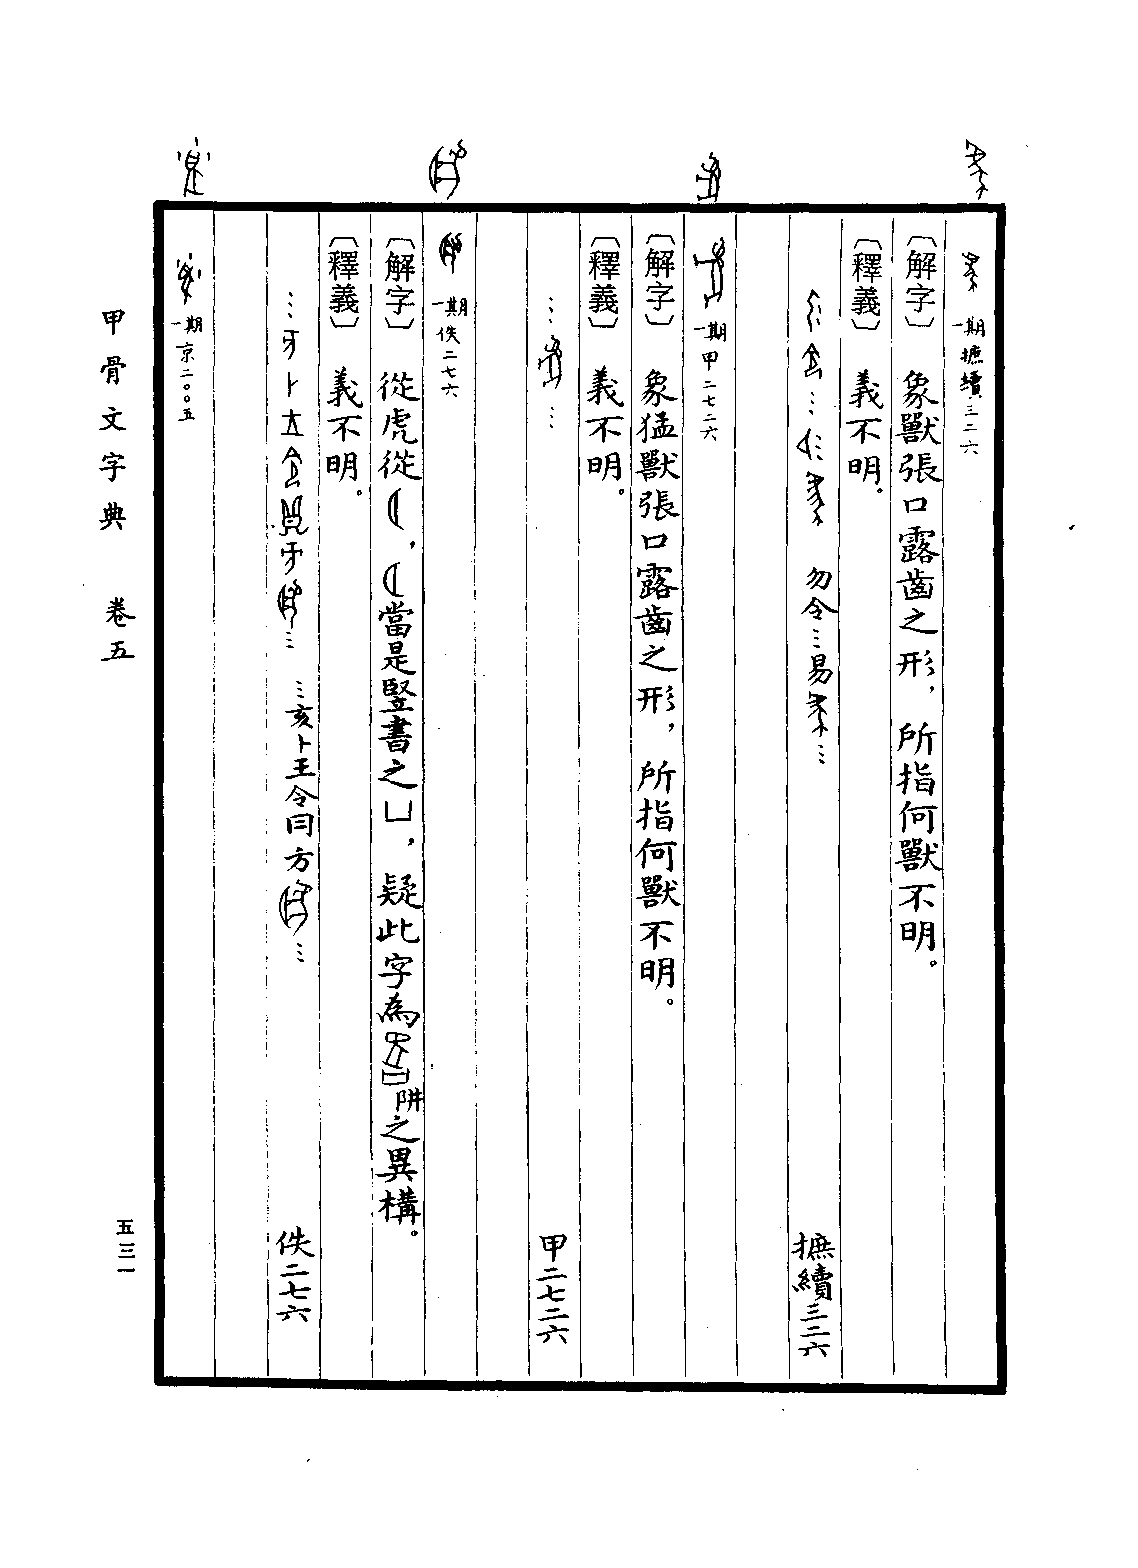 一期 摭續三二六
〔解字〕 象獸張口露齒之形，所指何獸不明。
〔釋義〕 義不明。
… 勿令…易…
摭續三二六
一期 甲二七二六
〔解字〕 象猛獸張口露齒之形，所指何獸不明。
〔釋義〕 義不明。
… …
甲二七二六
一期 佚二七六
〔解字〕 從虎從，當是豎書之凵，疑此字為阱之異構。
〔釋義〕 義不明。
… … …亥卜王令方…
佚二七六
一期 京二〇〇五
甲骨文字典 卷五
五三一